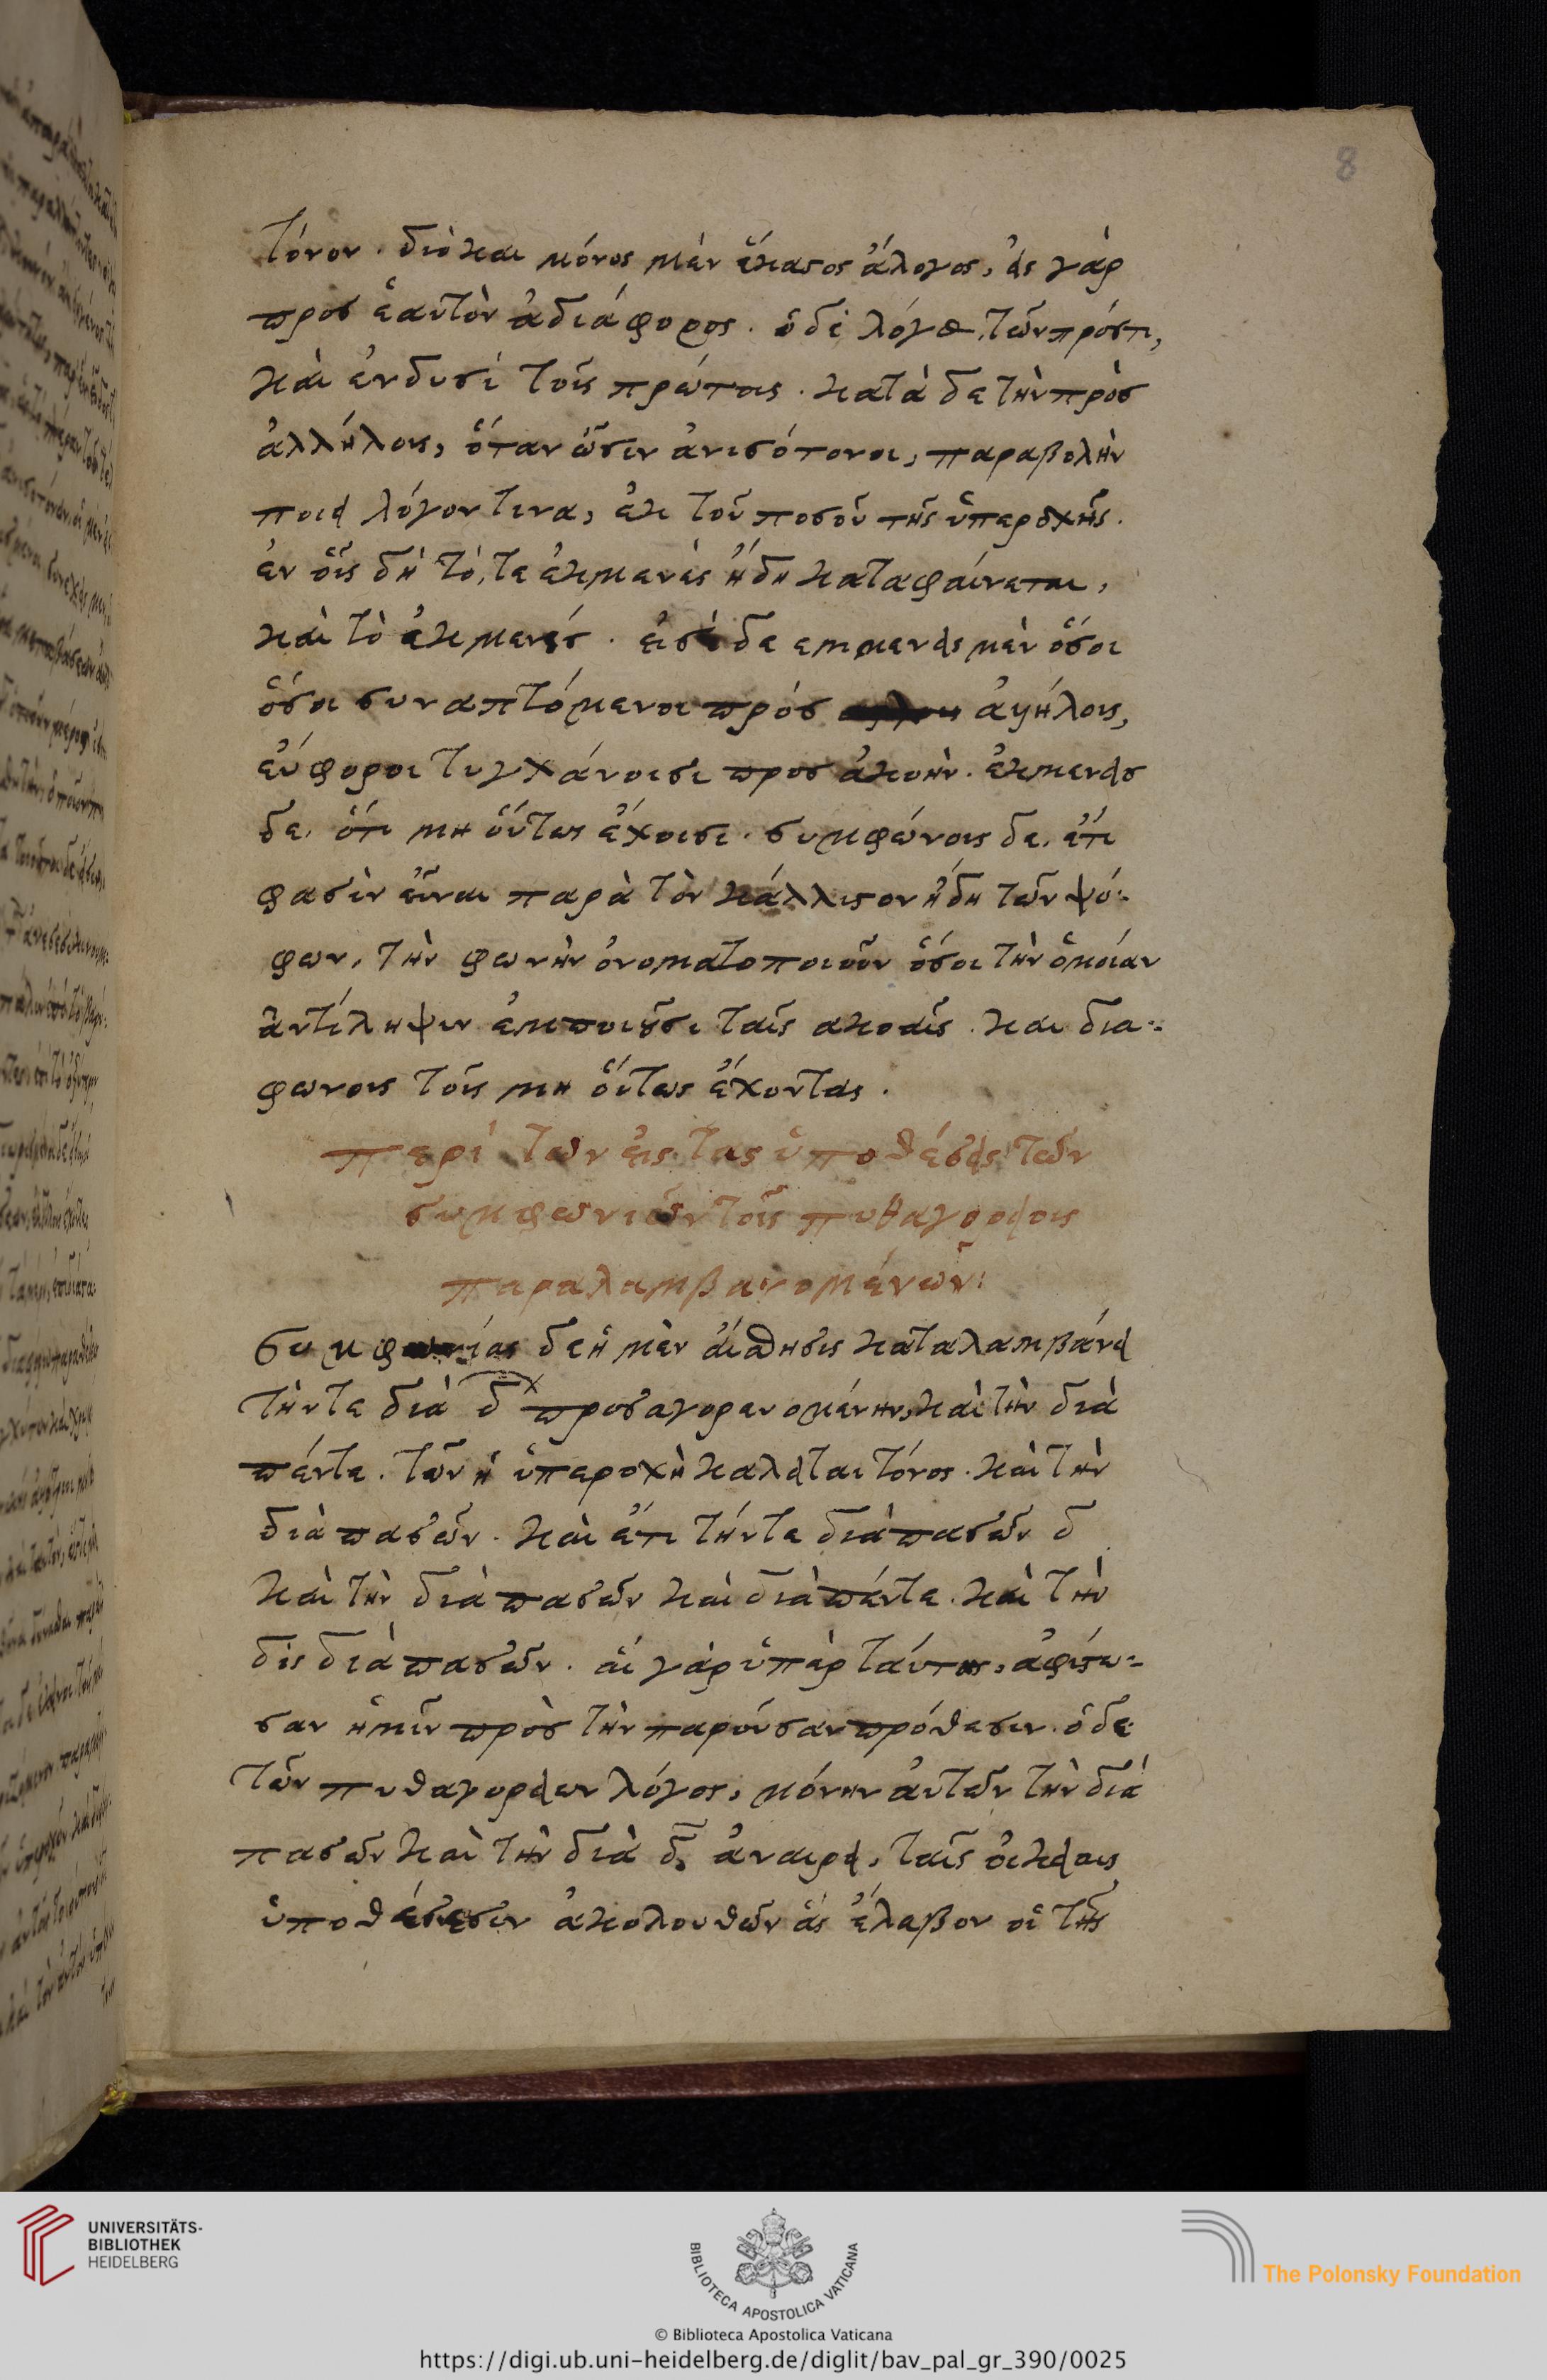 8
τόνον. διὸ και μόνος μὲν ἕκαστος ἄλογος, εἷς γὰρ
προσ ἑαυτὸν ἀδιάφορος. ὁ δὲ λόγος τῶν πρός τι,
καὶ ἐν δυσὶ τοῖς πρώτοις. κατὰ δε τὴν πρὸσ
ἀλλήλους, ὅταν ὦσιν ἀνισότονοι, παραβολὴν
ποιεῖ λόγον τινα, ἐκ τοῦ ποσοῦ τῆς ὑπεροχῆς.
ἐν οἷς δὴ τό, τε ἐκμελὲς ἤδη καταφαίνεται,
καὶ τὸ ἐμμελέσ. εἰσὶ δε εμμελεῖς μὲν ὅσοι
ὅσοι συναπτόμενοι πρόσ ἀλλήλους,
εὔφοροι τυγχάνουσι προσ ἀκοήν. ἐκμελεῖσ
δε, ὅσοι μη οὕτως ἔχουσι. συμφώνους δε, ἔτι
φασὶν εἶναι παρὰ τὸν κάλλιστον ἤδη τῶν ψό-
φων, τὴν φωνὴν ὀνοματοποιοῦν ὅσοι τὴν ὁμοίαν
ἀντίληψιν ἐμποιοῦσι ταῖς ακοαῖς. και δια-
φωνους τοὺς μη οὕτως ἔχοντας.
περὶ των εἰς τας ὑποθέσεις τῶν
συμφωνιῶν τοῖς πυθαγορείοις
παραλαμβανομένων:
Συμφωνίας δε ἡ μὲν αἴσθησις καταλαμβάνει
τήν τε διὰ δ προσαγορευομένην, καὶ τὴν διὰ
πέντε. τῶν ἡ ὑπεροχὴ καλεῖται τόνος. καὶ τὴν
διὰ πασῶν. καὶ ἔτι τήν τε διὰ πασῶν δ
καὶ τὴν διὰ πασῶν καὶ διὰ πέντε. καὶ τὴν
δὶς διὰ πασῶν. αἱ γὰρ ὑπὲρ ταύτας, ἀφείσθω-
σαν ἡμῖν πρὸσ τὴν παροῦσαν πρόθεσιν. ὁ δε
τῶν πυθαγορείων λόγος, μόνην αὐτῶν τὴν διὰ
πασῶν καὶ τὴν διὰ δ, ἀναιρεῖ, ταῖς οἰκείαις
ὑποθέσεσιν ἀκολουθῶν ἃς ἔλαβον οἱ τῆς
UNIVERSITÄTS-
BIBLIOTHEK
HEIDELBERG
BIBLIOTECA APOSTOLICA VATICANA
The Polonsky Foundation
© Biblioteca Apostolica Vaticana
https://digi.ub.uni-heidelberg.de/diglit/bav_pal_gr_390/0025